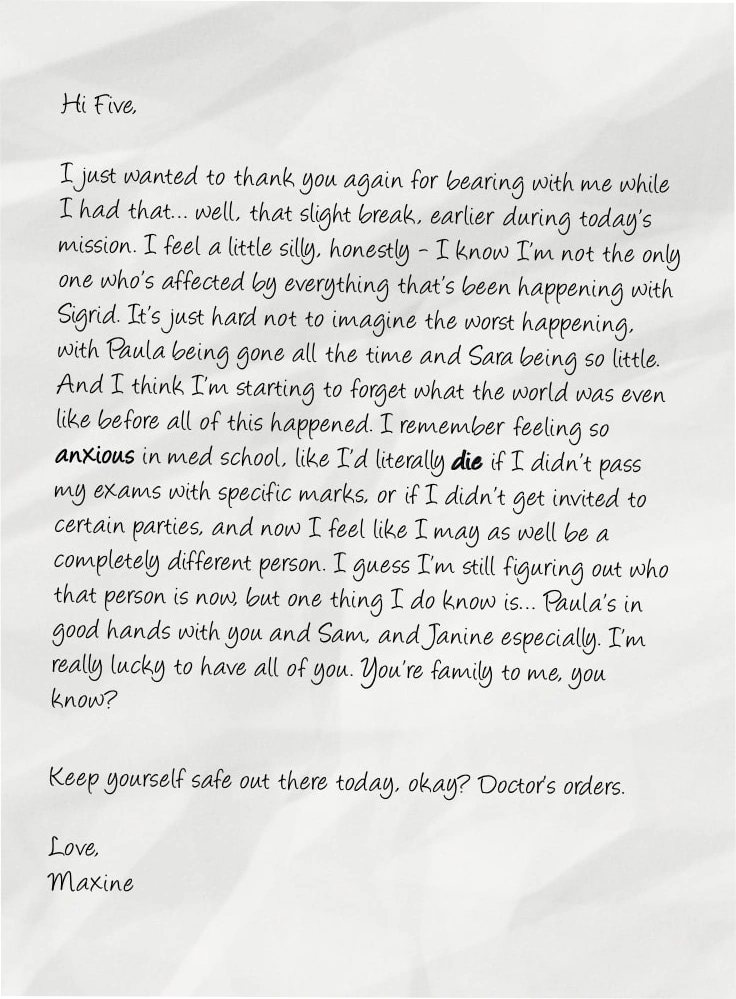 Hi Five,
I just wanted to thank you again for bearing with me while
I had that... well, that slight break, earlier during today's
mission. I feel a little silly, honestly - I know I'm not the only
one who's affected by everything that's been happening with
Sigrid. It's just hard not to imagine the worst happening,
with Paula being gone all the time and Sara being so little.
And I think I'm starting to forget what the world was even
like before all of this happened. I remember feeling so
anxious in med school, like I'd literally die if I didn't pass
my exams with specific marks, or if I didn't get invited to
certain parties, and now I feel like I may as well be a
completely different person. I guess I'm still figuring out who
that person is now, but one thing I do know is... Paula's in
good hands with you and Sam, and Janine especially. I'm
really lucky to have all of you. You're family to me, you
know?
Keep yourself safe out there today, okay? Doctor's orders.
Love,
Maxine